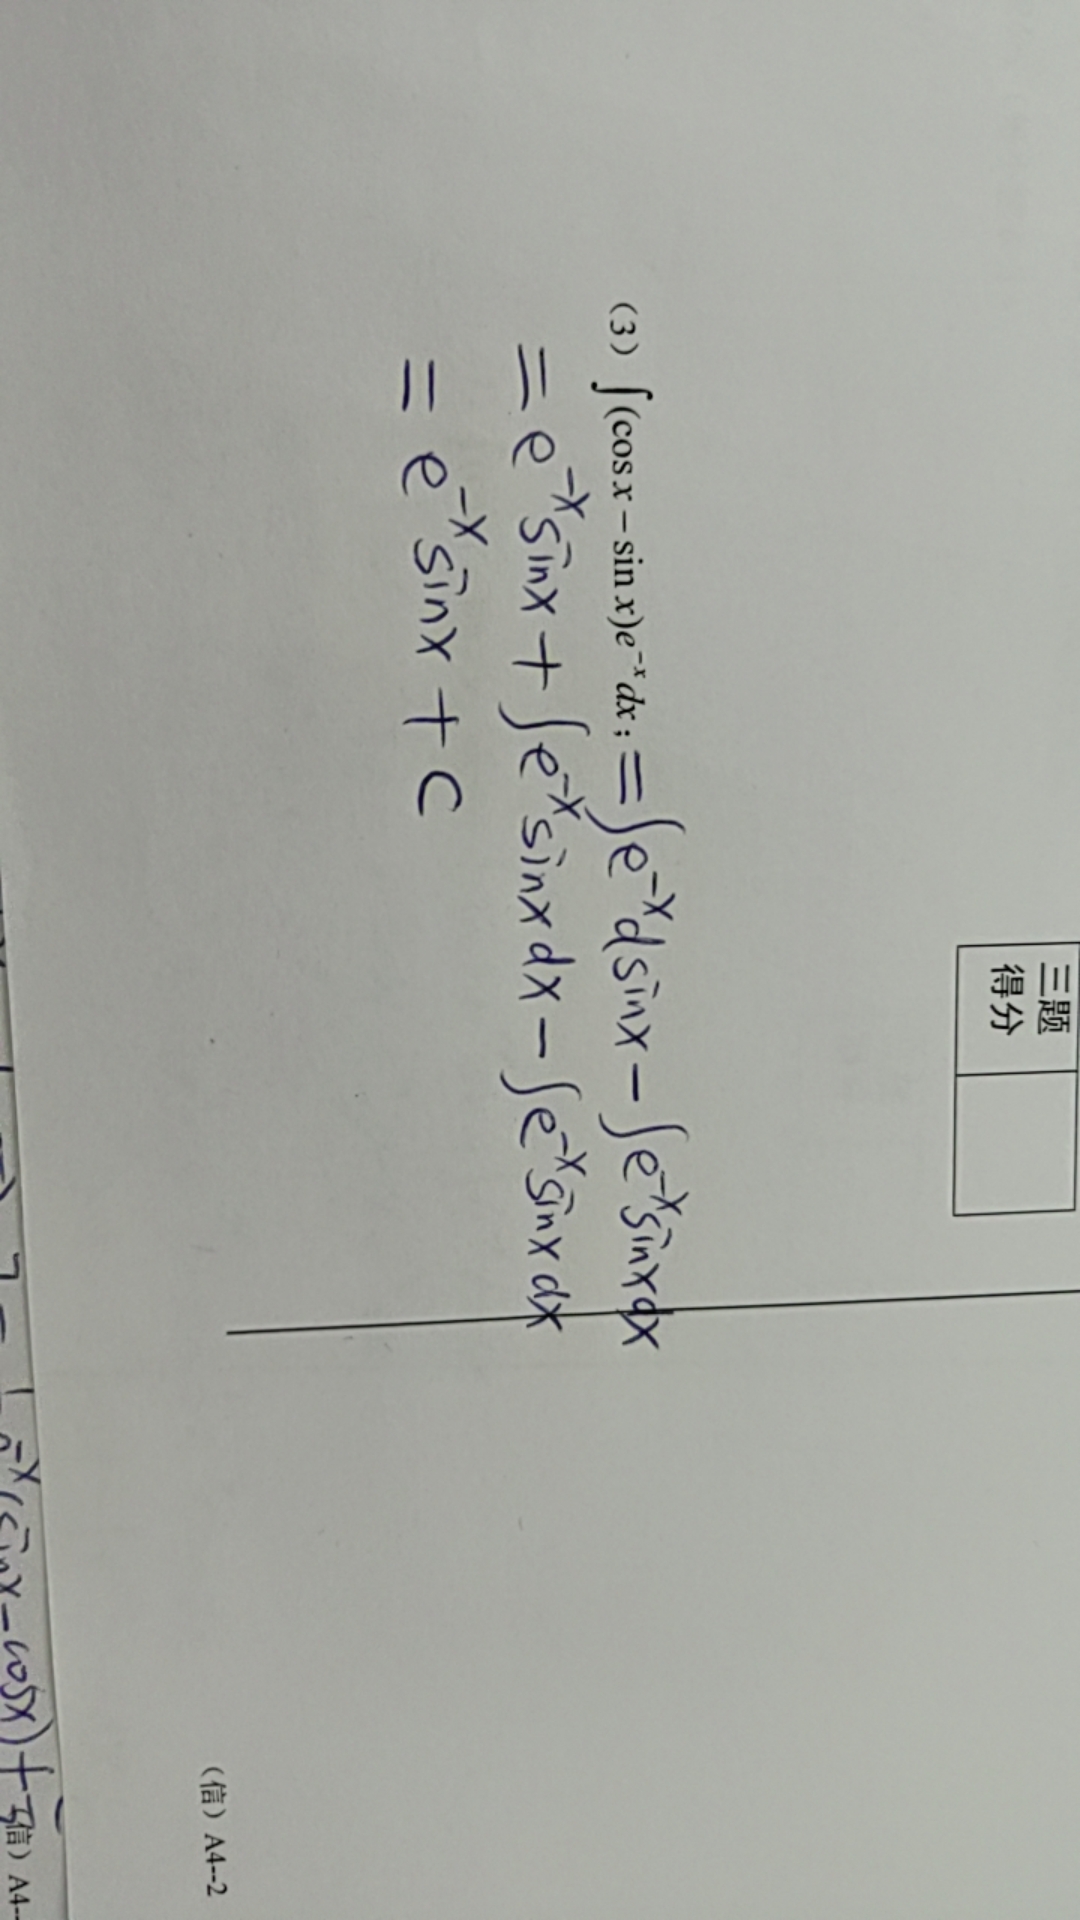 三题
得分
(3) ∫(cos x − sin x)e^{-x} dx; = ∫e^{-x} d sinx − ∫e^{-x} sinx dx
= e^{-x} sinx + ∫e^{-x} sinx dx − ∫e^{-x} sinx dx
= e^{-x} sinx + C
(信) A4--2
(sinx − cosx) +
信) A4--